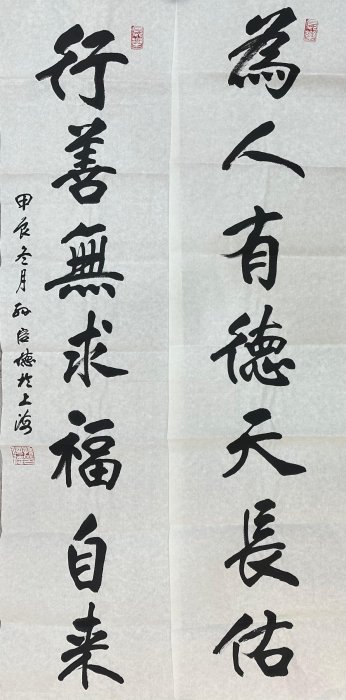 為人有德天長佑
行善無求福自来
甲辰冬月孙启德於上海